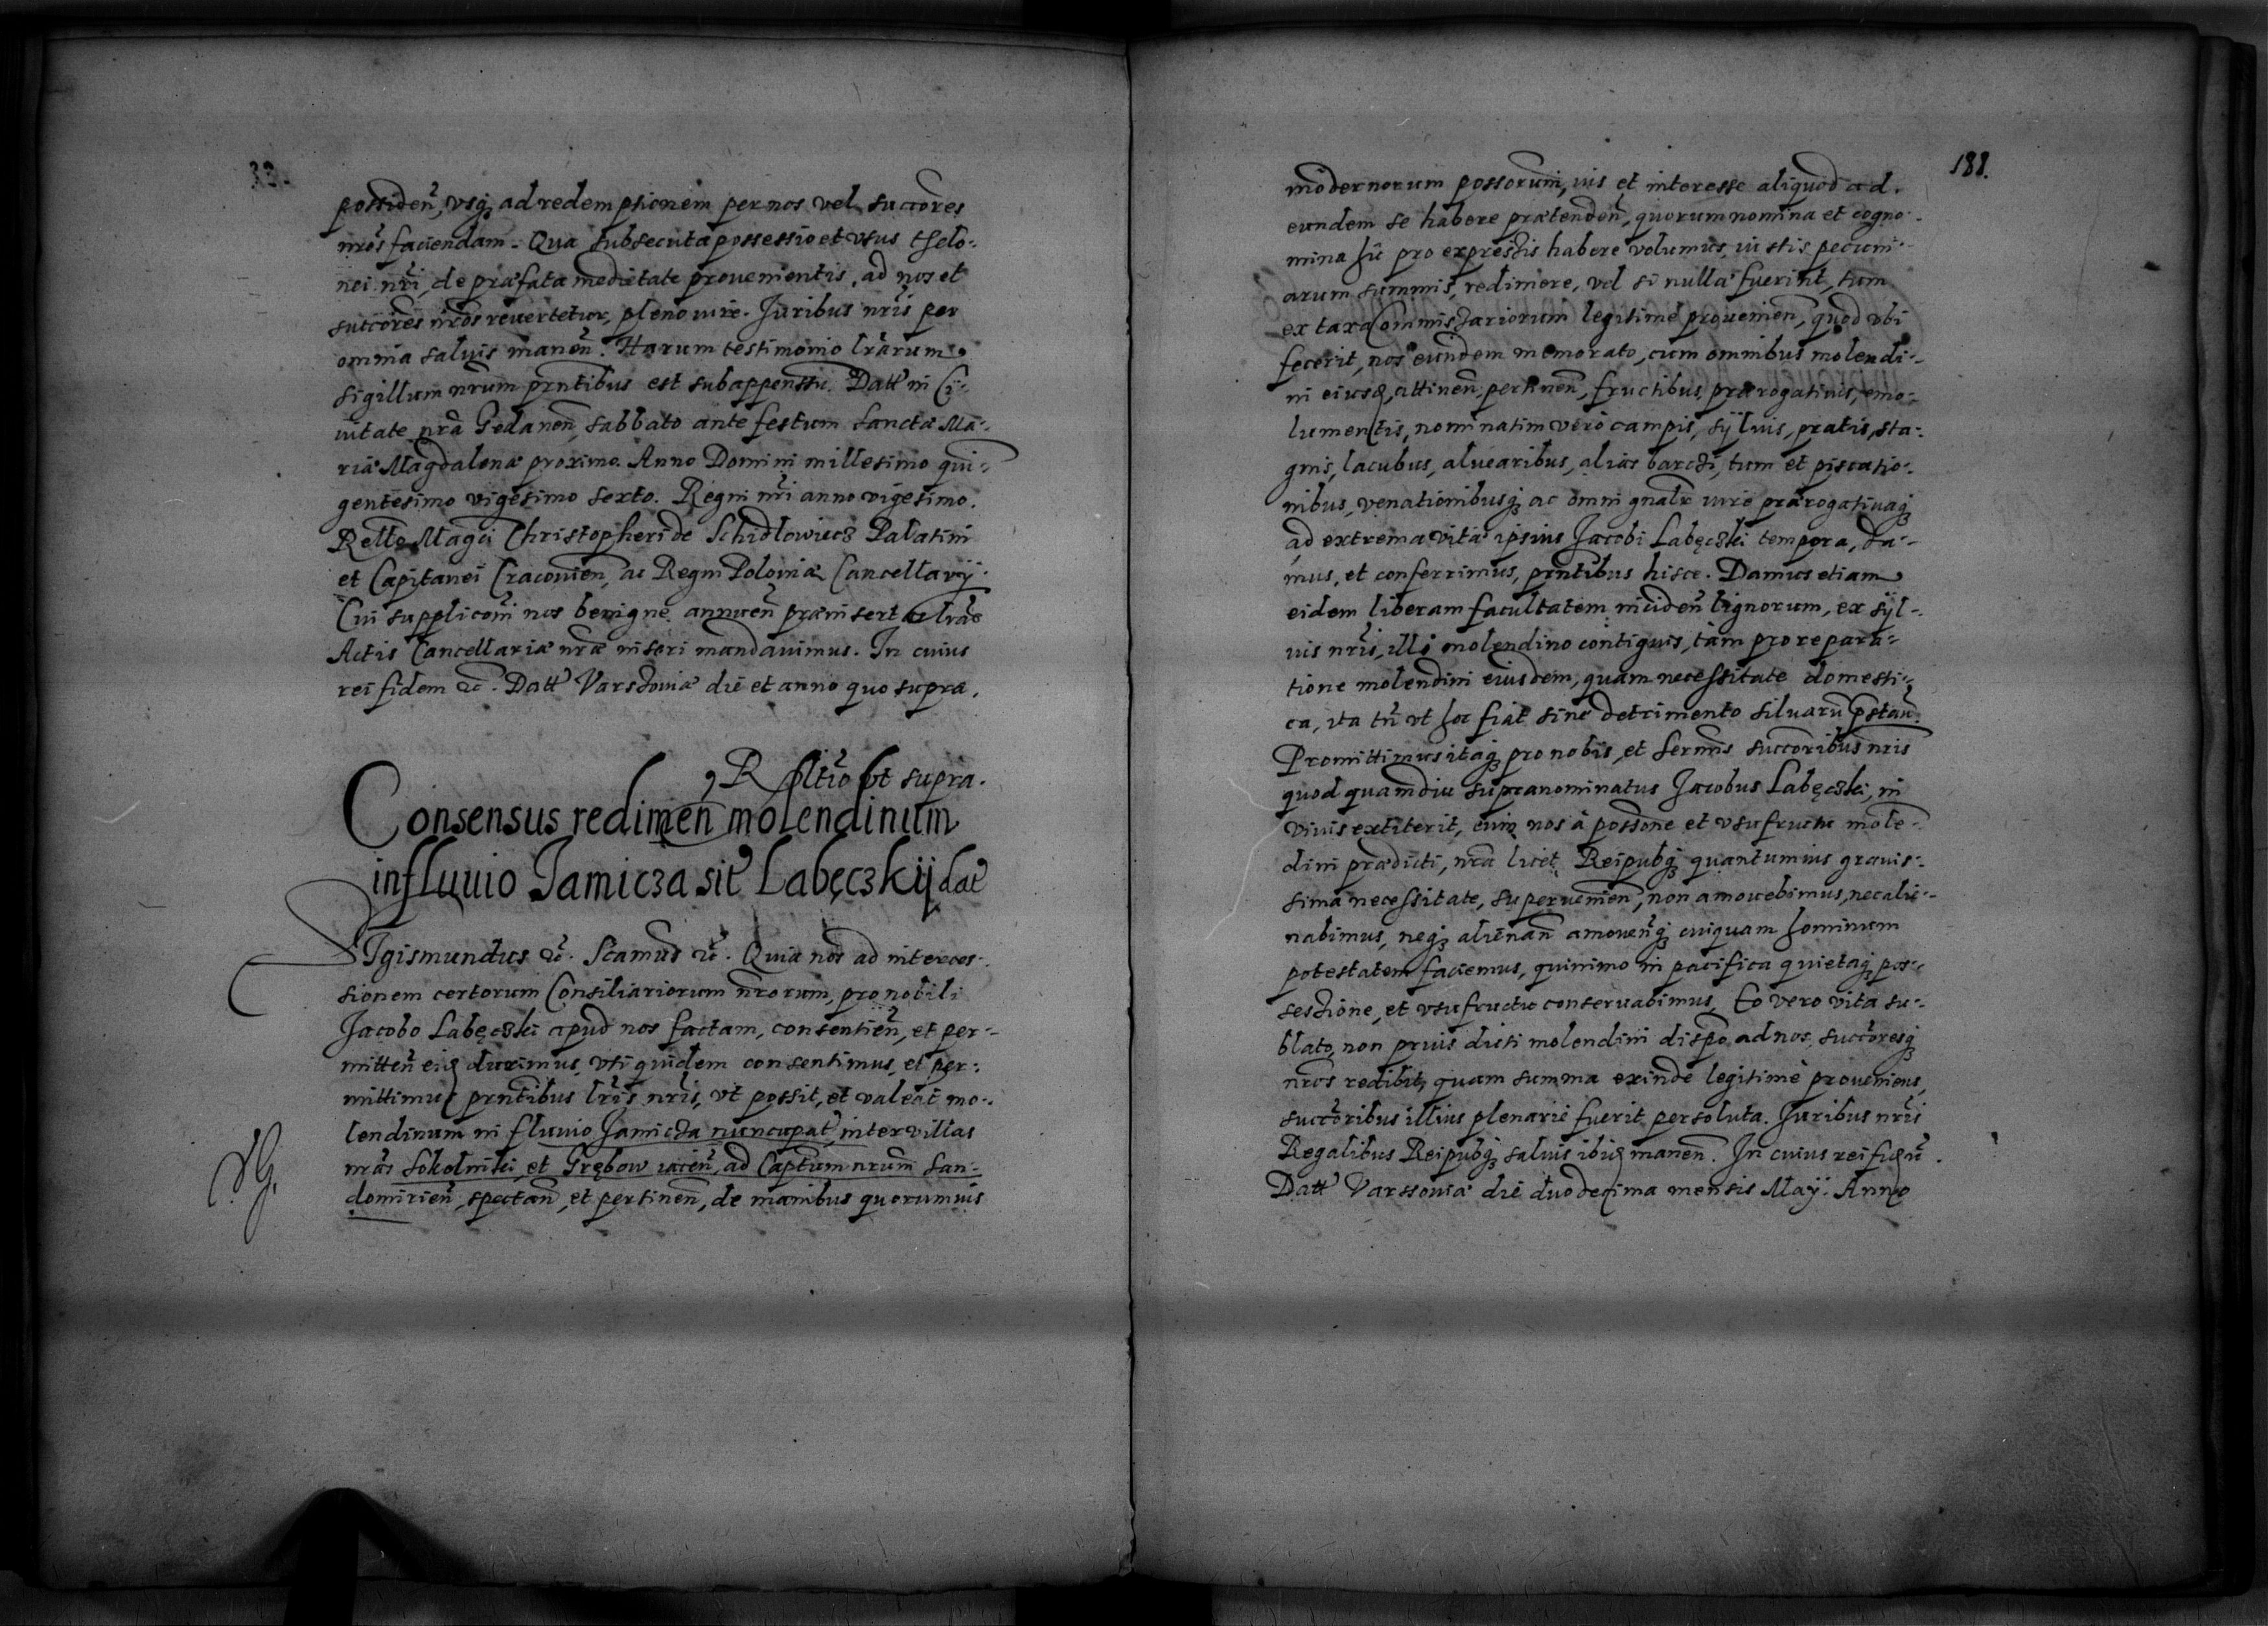 possideñ, vsq ad redemptionem per nos vel succores
nros faciendam. Qua subsecuta possessio et vsus thelo:
nei nri, de præfata medietate prouenientis, ad nos et
succores nros reuertetur, pleno iure. Juribus nris per
omnia saluis maneñ. Harum testimonio lrarum,
sigillum nrum prntibus est subappensu. Datt in Ci:
uitate nra Gedaneñ, sabbato ante festum sanctæ Ma:
riæ Magdalenæ proximo. Anno Domini millesimo quin:
gentesimo vigesimo sexto. Regni nri anno vigesimo.
Rellõ Magci Christopheri de Schidlowiecz Palatini
et Capitanei Cracovieñ, ac Regni Poloniæ Cancellarij.
Cui suppliconi nos benigne annueñ præinsertas lras
Actis Cancellariæ nræ inseri mandauimus. In cuius
rei fidem &c. Datt Varschoviæ die et anno quo supra.
Rltio vt supra.
Consensus redimeñ molendinum
in fluuio Jamicza sit Labęczkij dat
SIgismundus &c. Scamus &c. Quia nos ad interces:
sionem certorum Consiliariorum nrorum, pro nobili
Jacobo Labęczki apud nos factam, consentieñ, et per:
mitteñ eid duximus, vti quidem consentimus, et per:
mittimus prntibus lris nris, vt possit, et valeat mo:
lendinum in fluuio Jamicza nuncupat, inter villas
nras Sokolniki, et Grębow iaceñ, ad Captum nrum San:
domirieñ, spectañ, et pertineñ, de manibus quorumuis
188.
modernorum possorum, ius et interesse aliquod ad
eundem se habere prætendeñ, quorum nomina et cogno:
mina hic pro expressis habere volumus, iustis pecuni:
arum summis, redimere, vel si nulla fuerint, tum
ex taxa Commissariorum legitime prouenieñ, quod vbi
fecerit, nos eundem memorato, cum omnibus molendi:
ni eiusd, attineñ, pertineñ, fructibus, prærogatiuis, emo:
lumentis, nominatim vero campis, syluis, pratis, sta:
gnis, lacubus, aluearibus, alias barczi, tum et piscatio:
nibus, venationibusq ac omni gnalr iure prærogatiuaq
ad extrema vitæ ipsius Jacobi Labęczki tempora, da:
mus, et conferrimus, prntibus hisce. Damus etiam
eidem liberam facultatem incideñ lignorum, ex syl:
uis nris, illi molendino contiguis, tam pro repara:
tione molendini eiusdem, quam necessitate domesti:
ca, ita tñ vt hoc fiat sine detrimento siluarũ pstañ.
Promittimus itaq pro nobis, et sermis succoribus nris
quod quamdiu supranominatus Jacobus Labęczki, in
viuis extiterit, eum nos à possone et vsufructu mole:
dini prædicti, nra licet Reipubq quantumuis grauis:
sima necessitate, superuenieñ, non amouebimus, nec alie:
nabimus, neq alienañ amoueñq cuiquam hominum
potestatem faciemus, quinimo in pacifica quietaq pos:
sessione, et vsufructu conseruabimus. Eo vero vita su:
blato, non prius dicti molendini dispo ad nos, succoresq
nros redibit, quam summa exinde legitime proueniens,
succoribus illius plenarie fuerit persoluta. Juribus nris
Regalibus Reipubq saluis ibid maneñ. In cuius rei fid &c.
Datt Varssouiæ die duodecima mensis Maÿ. Anno